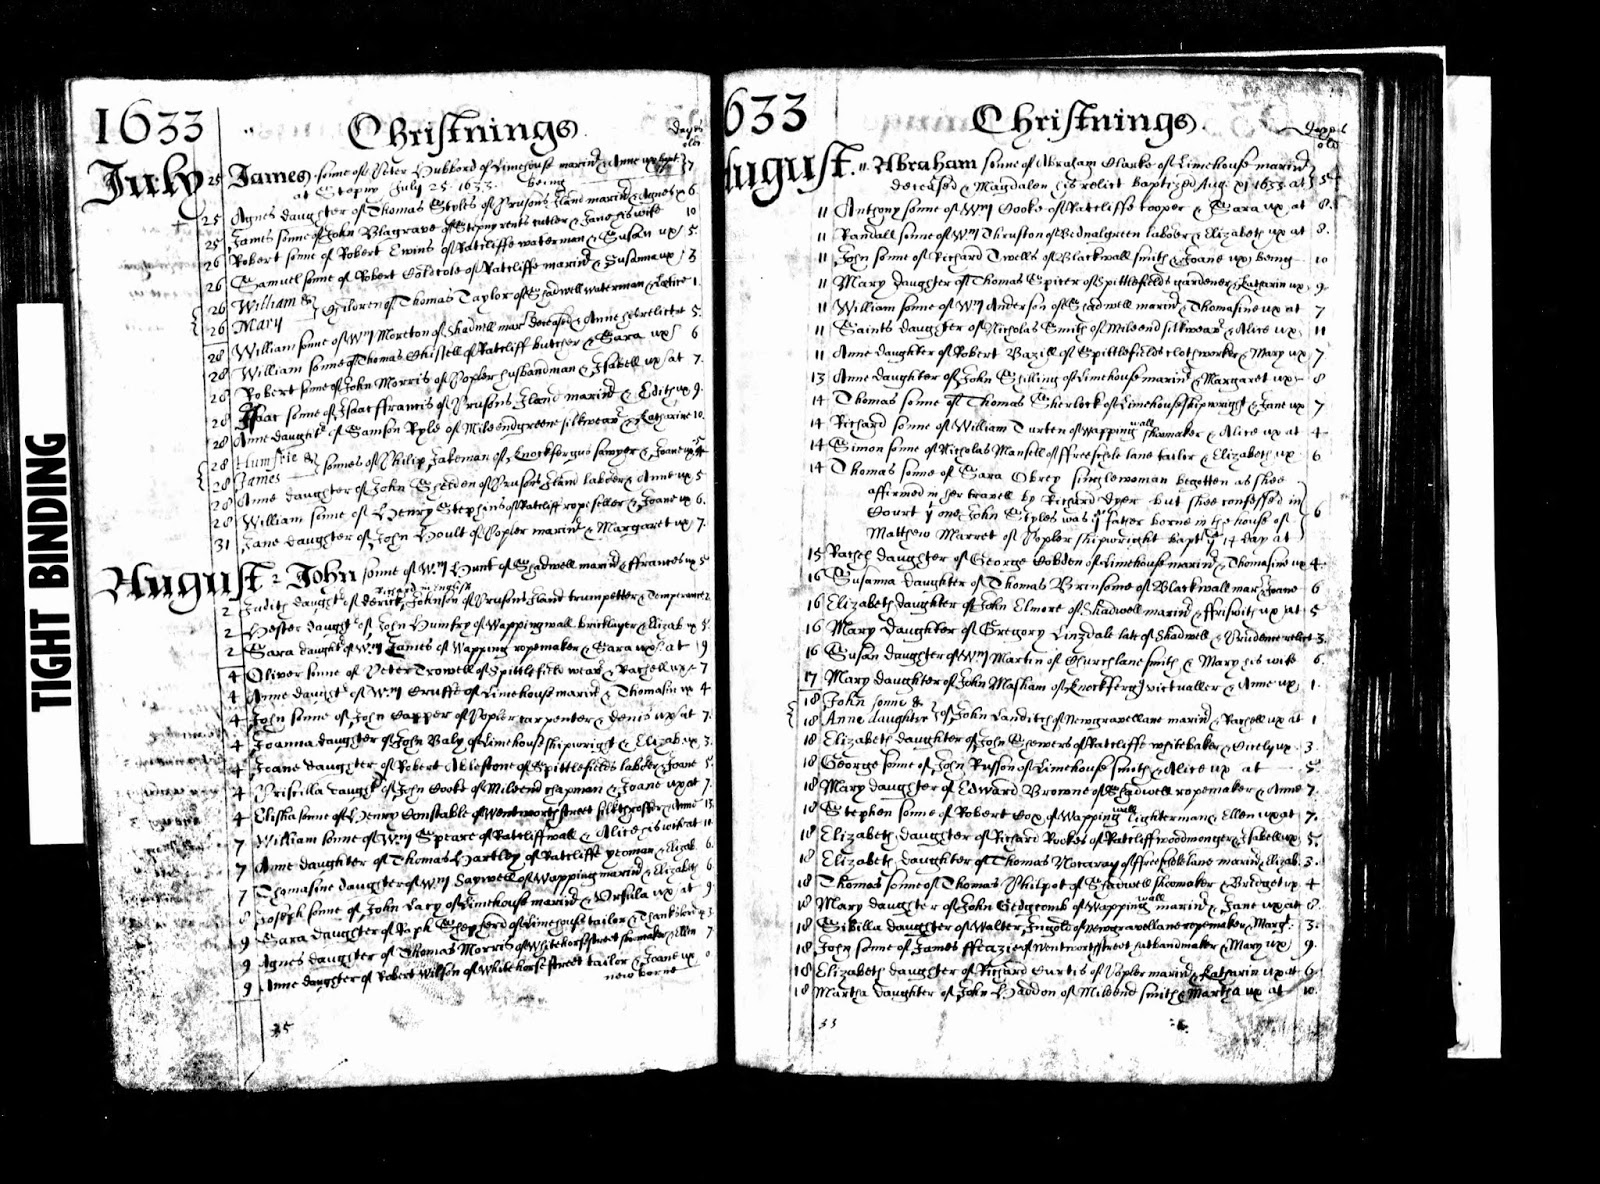 TIGHT BINDING
1633 Christnings. dayes
old
July 25 James sonne of Peter Hubbord of Limehouse marinr & Anne ux
at Stepny July 25. 1633. being 7
25 Agnes daughter of Thomas Styles of Prusons Iland marinr & Agnes ux 6
25 James sonne of John Blagrave of Stepny rents cutler & Jane his wife 10
26 Robert sonne of Robert Ewins of Ratcliffe waterman & Susan ux 5
26 Samuel sonne of Robert Colecote of Ratcliffe marinr & Susanna ux 3
26 William &
26 Mary Children of Thomas Taylor of Shadwell waterman & Lettice 1
28 William sonne of Wm Moreton of Shadwell mar deceased & Anne his relicte 5
28 William sonne of Thomas Chissell of Ratcliff butcher & Sara ux 6
28 Robert sonne of John Morris of Popler husbandman & Isabell ux at 7
28 Isaac sonne of Isaac ffrancis of Prusons Iland marinr & Edith ux 9
28 Anne daughtr of Samson Ryle of Mileendgreene silkwear & Katharine 10
28 Humfrie &
28 James sonnes of Philip Jakeman of Knockfergus sawyer & Joane ux
28 Anne daughter of John Shelden of Prusons Iland laborer & Anne ux 5
28 William sonne of Henry Stephins of Ratcliff ropeseller & Joane ux 6
31 Jane daughter of John Hoult of Popler marinr & Margaret ux 7
August 2 John sonne of Wm Hunt of Shadwell marinr & ffrances ux 5
2 Judith daught of derick Johnson of Prusons Iland trumpetter & Temperance 2
2 Hester daught of John Humfry of Wappingwall bricklayer & Elizab ux 5
2 Sara daught of Wm James of Wapping ropemaker & Sara ux at 9
4 Oliver sonne of Peter Trowell of Spittlefild wear & Rachell ux 7
4 Anne daught of Wm Cruffe of Limehouse marinr & Thomasin ux 4
4 John sonne of John Capper of Popler carpenter & Denis ux at 7
4 Joanna daughter of John Baly of Limehouse shipwright & Elizab ux 3
4 Joane daughter of Robert Ablestone of Spittlefields laborer & Joane 5
4 Priscilla daught of John Cooke of Mileend chapman & Joane ux at 7
4 Elisha sonne of Henry Constable of Wentworthstreet & Anne 13
7 William sonne of Wm Speare of Ratcliffwall & Alice his wife at 11
7 Anne daughter of Thomas Hartley of Ratcliffe yeoman & Elizab. 6
7 Thomasine daughter of Wm Saywell of Wapping marinr & Elizabeth 6
8 Joseph sonne of John Lacy of Limehouse marinr & Ursula ux at 9
9 Sara daughter of Raph Shepherd of Limehouse tailor & 3
9 Agnes daughter of Thomas Morris of Whitehorsstreet & Ellen 7
9 Anne daughter of Robert Wilson of Whitehorse street tailor & Joane ux
new borne
35
633 Christnings. dayes
old
August. 11 Abraham sonne of Abraham Clarke of Limehouse marinr
deceased & Magdalen his relict baptized Aug. xj 1633 at 5
11 Anthony sonne of Wm Cooke of Ratcliffe cooper & Sara ux at 8
11 Randall sonne of Wm Thruston of Bednalgreen laborer & Elizabeth ux at 8
11 John sonne of Richard Twells of Blackwall smith & Joane ux being 10
11 Mary daughter of Thomas Spicer of Spittlefilds gardener & Katharin ux 9
11 William sonne of Wm Anderson of Shadwell marinr & Thomasine ux at 7
11 Saints daughter of Nicholas Smith of Mileend silkwear & Alice ux 11
11 Anne daughter of Robert Bazill of Spittlefields clothworker & Mary ux 7
13 Anne daughter of John Shilling of Limehouse marinr & Margaret ux 8
14 Thomas sonne of Thomas Sherlock of Limehouse shipwright & Jane ux 7
14 Richard sonne of William Turten of Wapping wall shomaker & Alice ux at 4
14 Simon sonne of Nicholas Mansell of ffreeschole lane tailor & Elizabeth ux 6
14 Thomas sonne of Sara Obrey singlewoman begotten as shee
affirmed in her travell by Richard Dyer but shee confessed in
Court yt one John Styles was ye father borne in the house of 6
Matthew Marret of Popler shipwright bapt ye 14 day at
15 Rachel daughter of George Cobden of Limehouse marinr & Thomasine ux 4
16 Susanna daughter of Thomas Brinsome of Blackwall mar & Joane 6
16 Elizabeth daughter of John Elmore of Shadwell marinr & ffriswith ux at 5
16 Mary daughter of Gregory Linzdale late of Shadwell & Prudence relict 3
16 Susan daughter of Wm Martin of Churchlane smith & Mary his wife 6
17 Mary daughter of John Masham of Knockferg victualler & Anne ux 1
18 John sonne &
18 Anne daughter of John Landitch of Newgravellane marinr & Rachell ux at 1
18 Elizabeth daughter of John Shewers of Ratcliffe whitebaker & Cicely ux 3
18 George sonne of John Russon of Limehouse smith & Alice ux at 5
18 Mary daughter of Edward Browne of Shadwell ropemaker & Anne 7
18 Stephen sonne of Robert Cox of Wapping wall lighterman & Ellen ux at 7
18 Elizabeth daughter of Richard Rookes of Ratcliff woodmonger & Isabell ux 5
18 Elizabeth daughter of Thomas of ffreeschole lane marinr & Elizab. 3
18 Thomas sonne of Thomas Philpot of Shadwell shoomaker & Bridget ux 4
18 Mary daughter of John Gedgcomb of Wapping wall marinr & Jane ux at 8
18 Sibilla daughter of Walter Ingold of Newgravellane ropemaker & Marg. 3
18 John sonne of James of Wentworthstreet & Mary ux 9
18 Elizabeth daughter of Richard Curtis of Popler marinr & Katharin ux at 6
18 Martha daughter of John Haddon of Mileend smith & Martha ux at 10
33